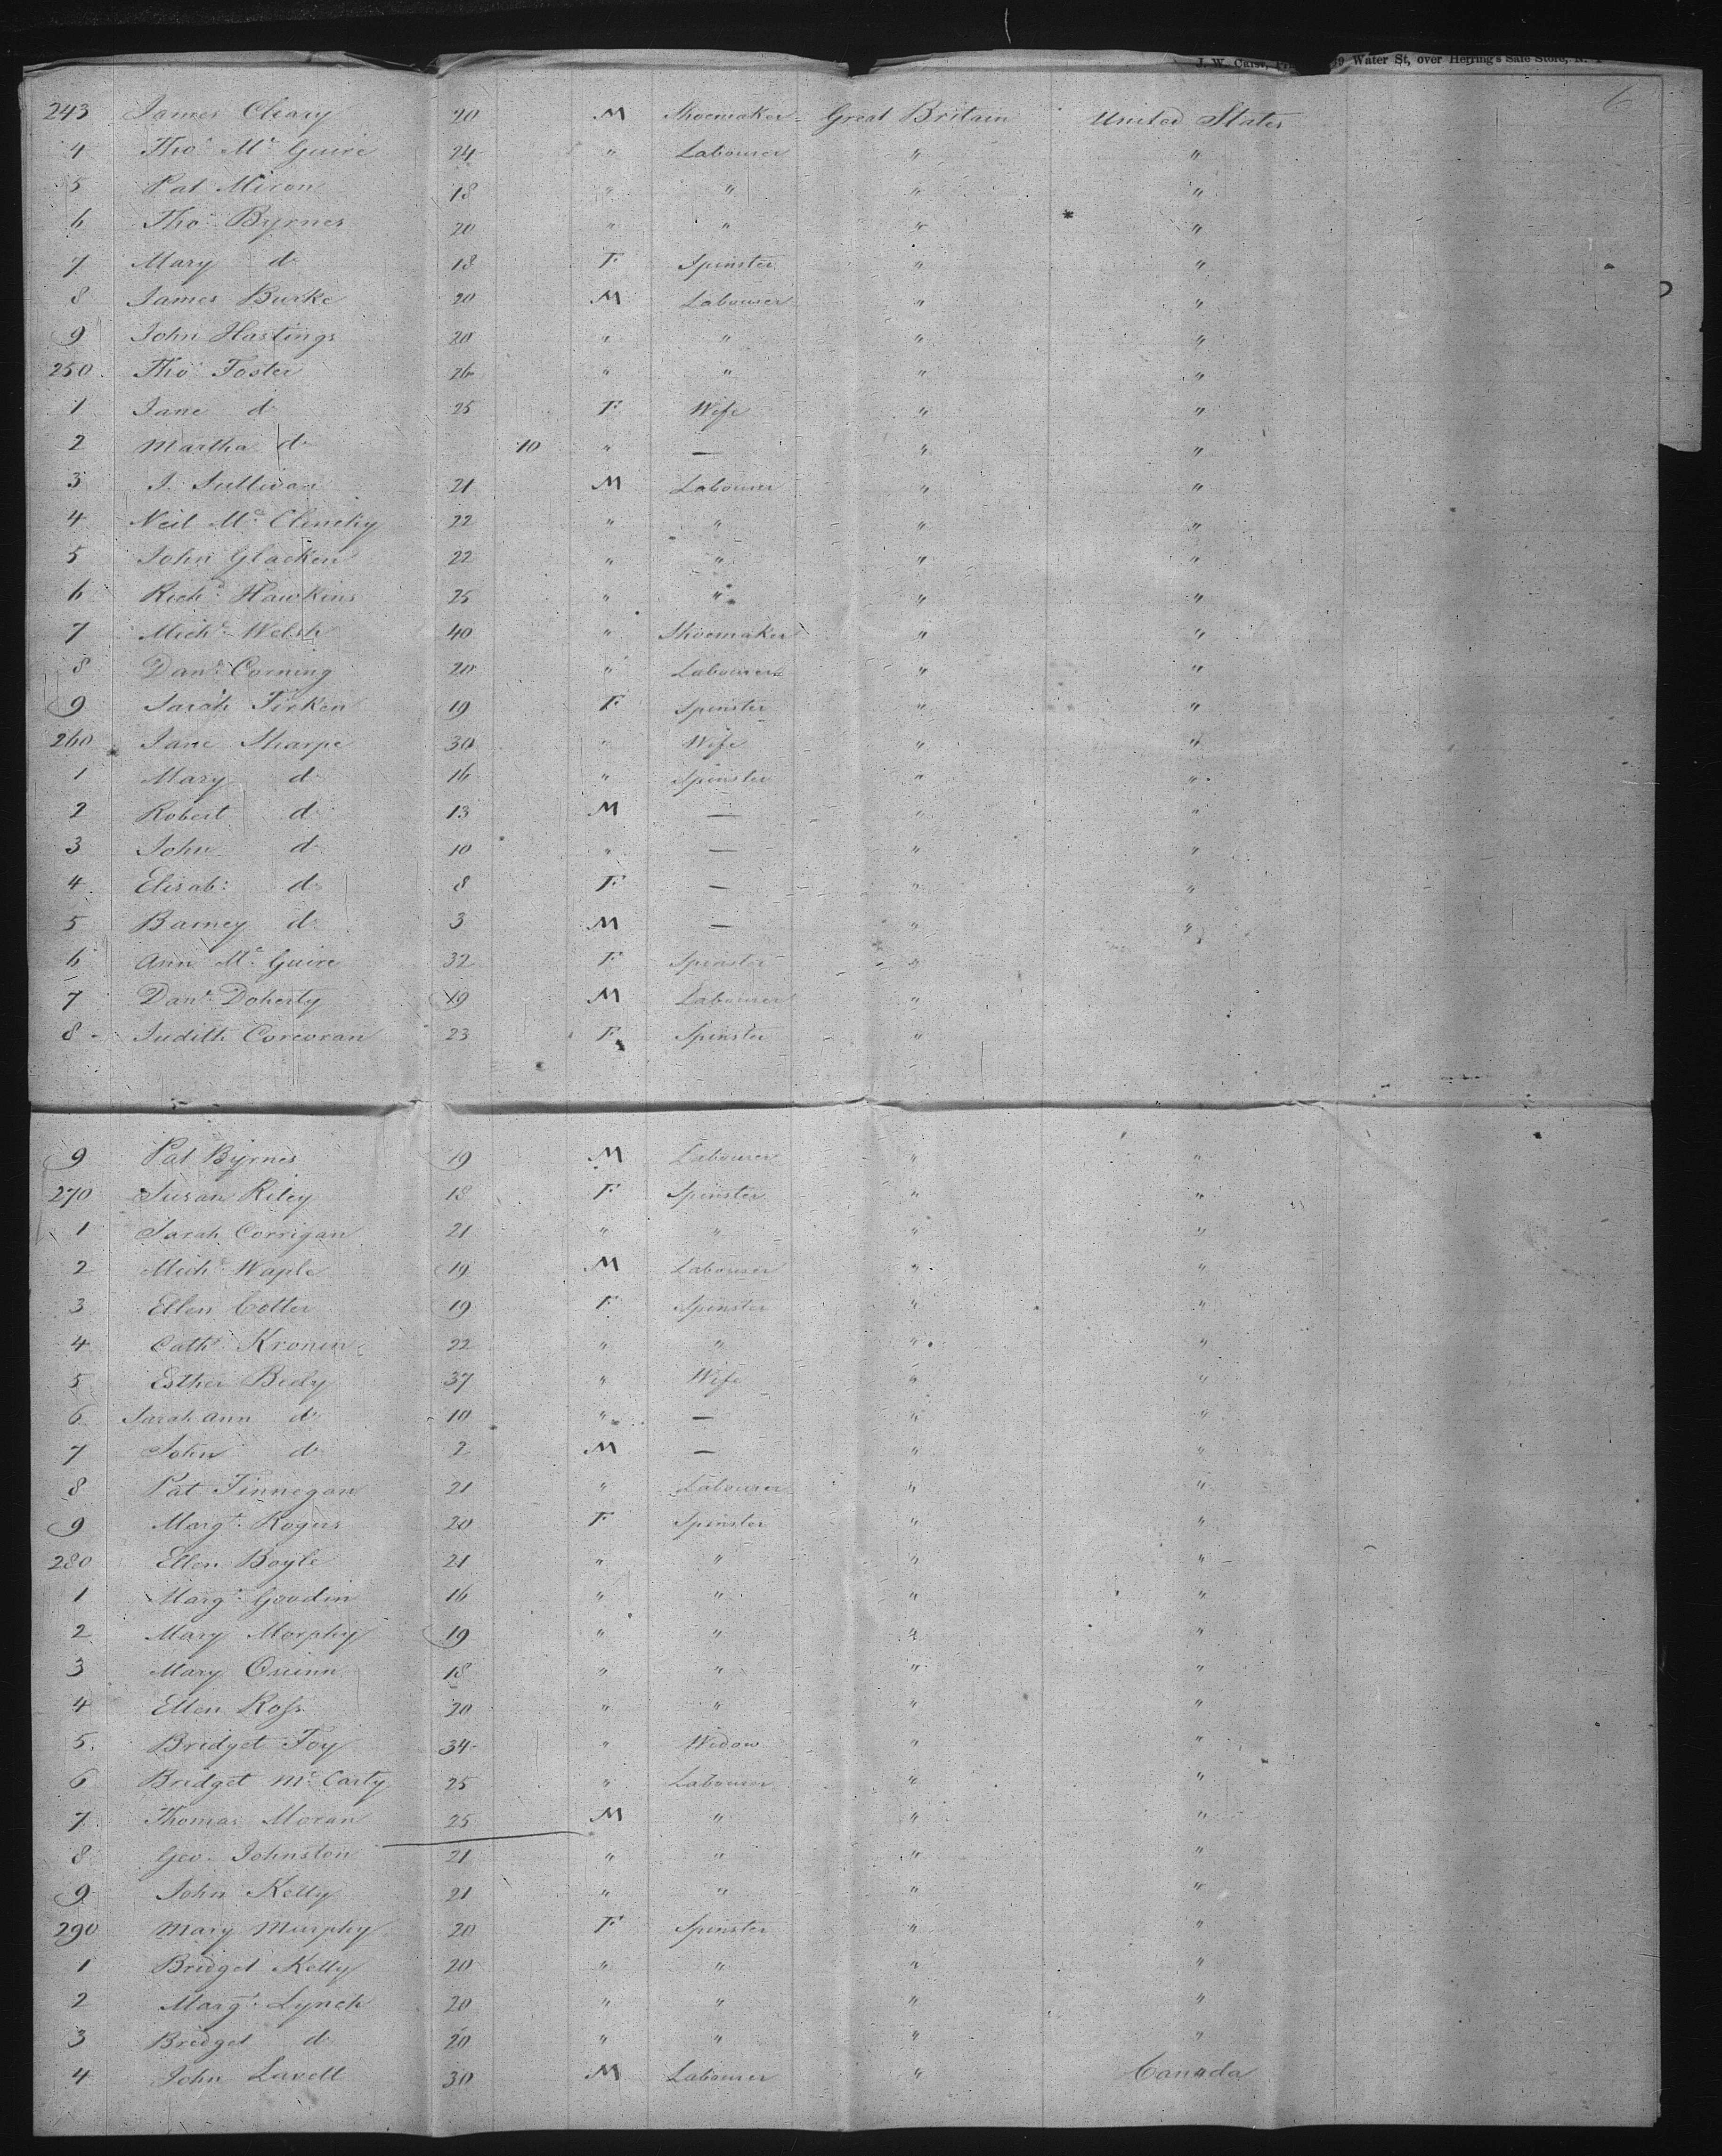 Water St, over Herring's Safe Store, N. Y
6
243 James Cleary 20 M Shoemaker Great Britain United States
4 Tho' Mc Guire 24 " Labourer " "
5 Pat Miron 18 " " " "
6 Tho' Byrnes 20 " " " "
7 Mary do 18 F Spinster " "
8 James Burke 20 M Labourer " "
9 John Hastings 20 " " " "
250 Tho' Foster 26 " " " "
1 Jane do 25 F Wife " "
2 Martha do 10 " — " "
3 J. Sullivan 21 M Labourer " "
4 Neil Mc Clinchy 22 " " " "
5 John Glacken 22 " " " "
6 Richd Hawkins 25 " " " "
7 Michl Welsh 40 " Shoemaker " "
8 Danl Corning 20 " Labourer " "
9 Sarah Firken 19 F Spinster " "
260 Jane Sharpe 30 " Wife " "
1 Mary do 16 " Spinster " "
2 Robert do 13 M — " "
3 John do 10 " — " "
4 Elisab: do 8 F — " "
5 Barney do 3 M — " "
6 Ann Mc Guire 32 F Spinster "
7 Danl Doherty 19 M Labourer "
8 Judith Corcoran 23 F Spinster "
9 Pat Byrnes 19 M Labourer " "
270 Susan Riley 18 F Spinster " "
1 Sarah Corrigan 21 " " " "
2 Michl Waple 19 M Labourer " "
3 Ellen Cotter 19 F Spinster " "
4 Cath Kronin 22 " " " "
5 Esther Beely 37 " Wife " "
6 Sarah Ann do 10 " — " "
7 John do 2 M — " "
8 Pat Finnegan 21 " Labourer " "
9 Margt Rogers 20 F Spinster " "
280 Ellen Boyle 21 " " " "
1 Margt Goodin 16 " " " "
2 Mary Morphy 19 " " " "
3 Mary Quinn 18 " " " "
4 Ellen Ross 20 " " " "
5 Bridget Foy 34 " Widow " "
6 Bridget Mc Carty 25 " Labourer " "
7 Thomas Moran 25 M " " "
8 Geo. Johnston 21 " " " "
9 John Kelly 21 " " " "
290 Mary Murphy 20 F Spinster " "
1 Bridget Kelly 20 " " " "
2 Margt Lynch 20 " " " "
3 Bridget do 20 " " " "
4 John Lavell 30 M Labourer " Canada